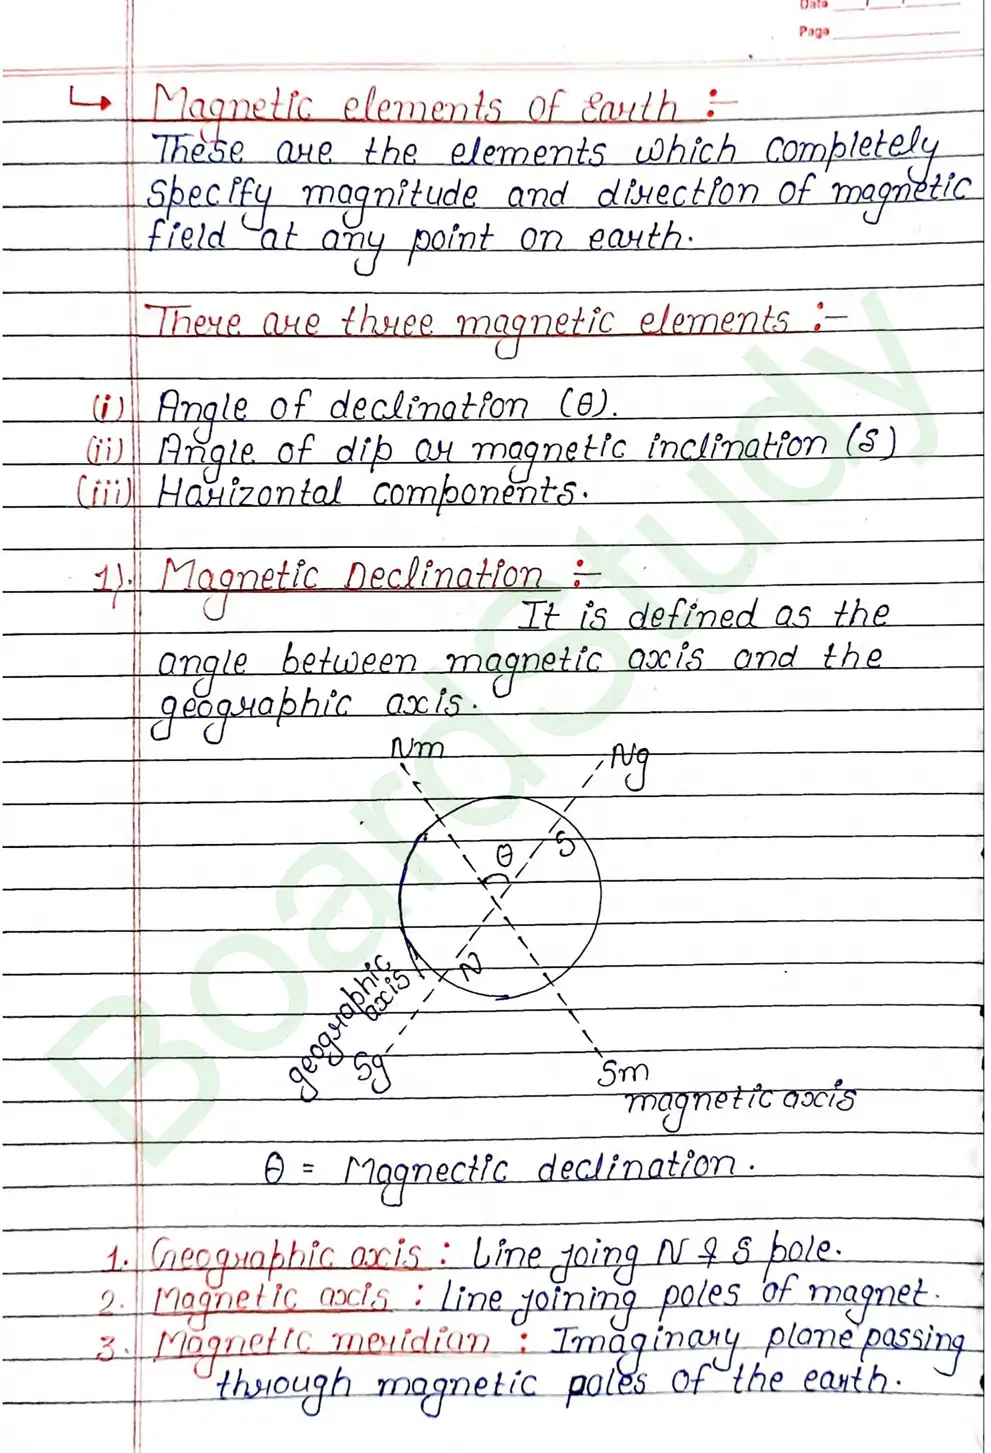 Date
Page
Magnetic elements of Earth :-
These are the elements which completely
specify magnitude and direction of magnetic
field at any point on earth.
There are three magnetic elements :-
(i) Angle of declination (θ).
(ii) Angle of dip or magnetic inclination (S)
(iii) Horizontal components.
1). Magnetic Declination :-
It is defined as the
angle between magnetic axis and the
geographic axis.
Nm Ng
S
θ
N
geographic
axis
Sg
Sm
magnetic axis
θ = Magnectic declination.
1. Geographic axis : Line joing N & S pole.
2. Magnetic axis : Line joining poles of magnet.
3. Magnetic meridian : Imaginary plane passing
through magnetic poles of the earth.
BoardStudy